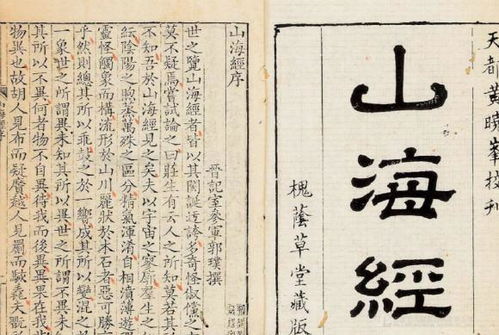 天都黄曉峯校刊
山海經
槐蔭草堂藏版
山海經序
晉記室參軍郭璞撰
世之覽山海經者皆以其閎誕迂誇多奇怪俶儻之
莫不疑焉嘗試論之曰莊生有云人之所知莫若其
不知吾於山海經見之矣夫以宇宙之寥廓羣生之
紜陰陽之煦蒸萬殊之區分精氣渾淆自相濆薄遊
靈怪觸象而構流形於山川麗狀於木石者惡可勝
乎然則總其所以乖鼓之於一響成其所以變混之
一象世之所謂異未知其所以異世之
其所以不異何者物不自異待我而後異異果在我
物異也故胡人見布而疑黂越人見罽而駭毳夫翫